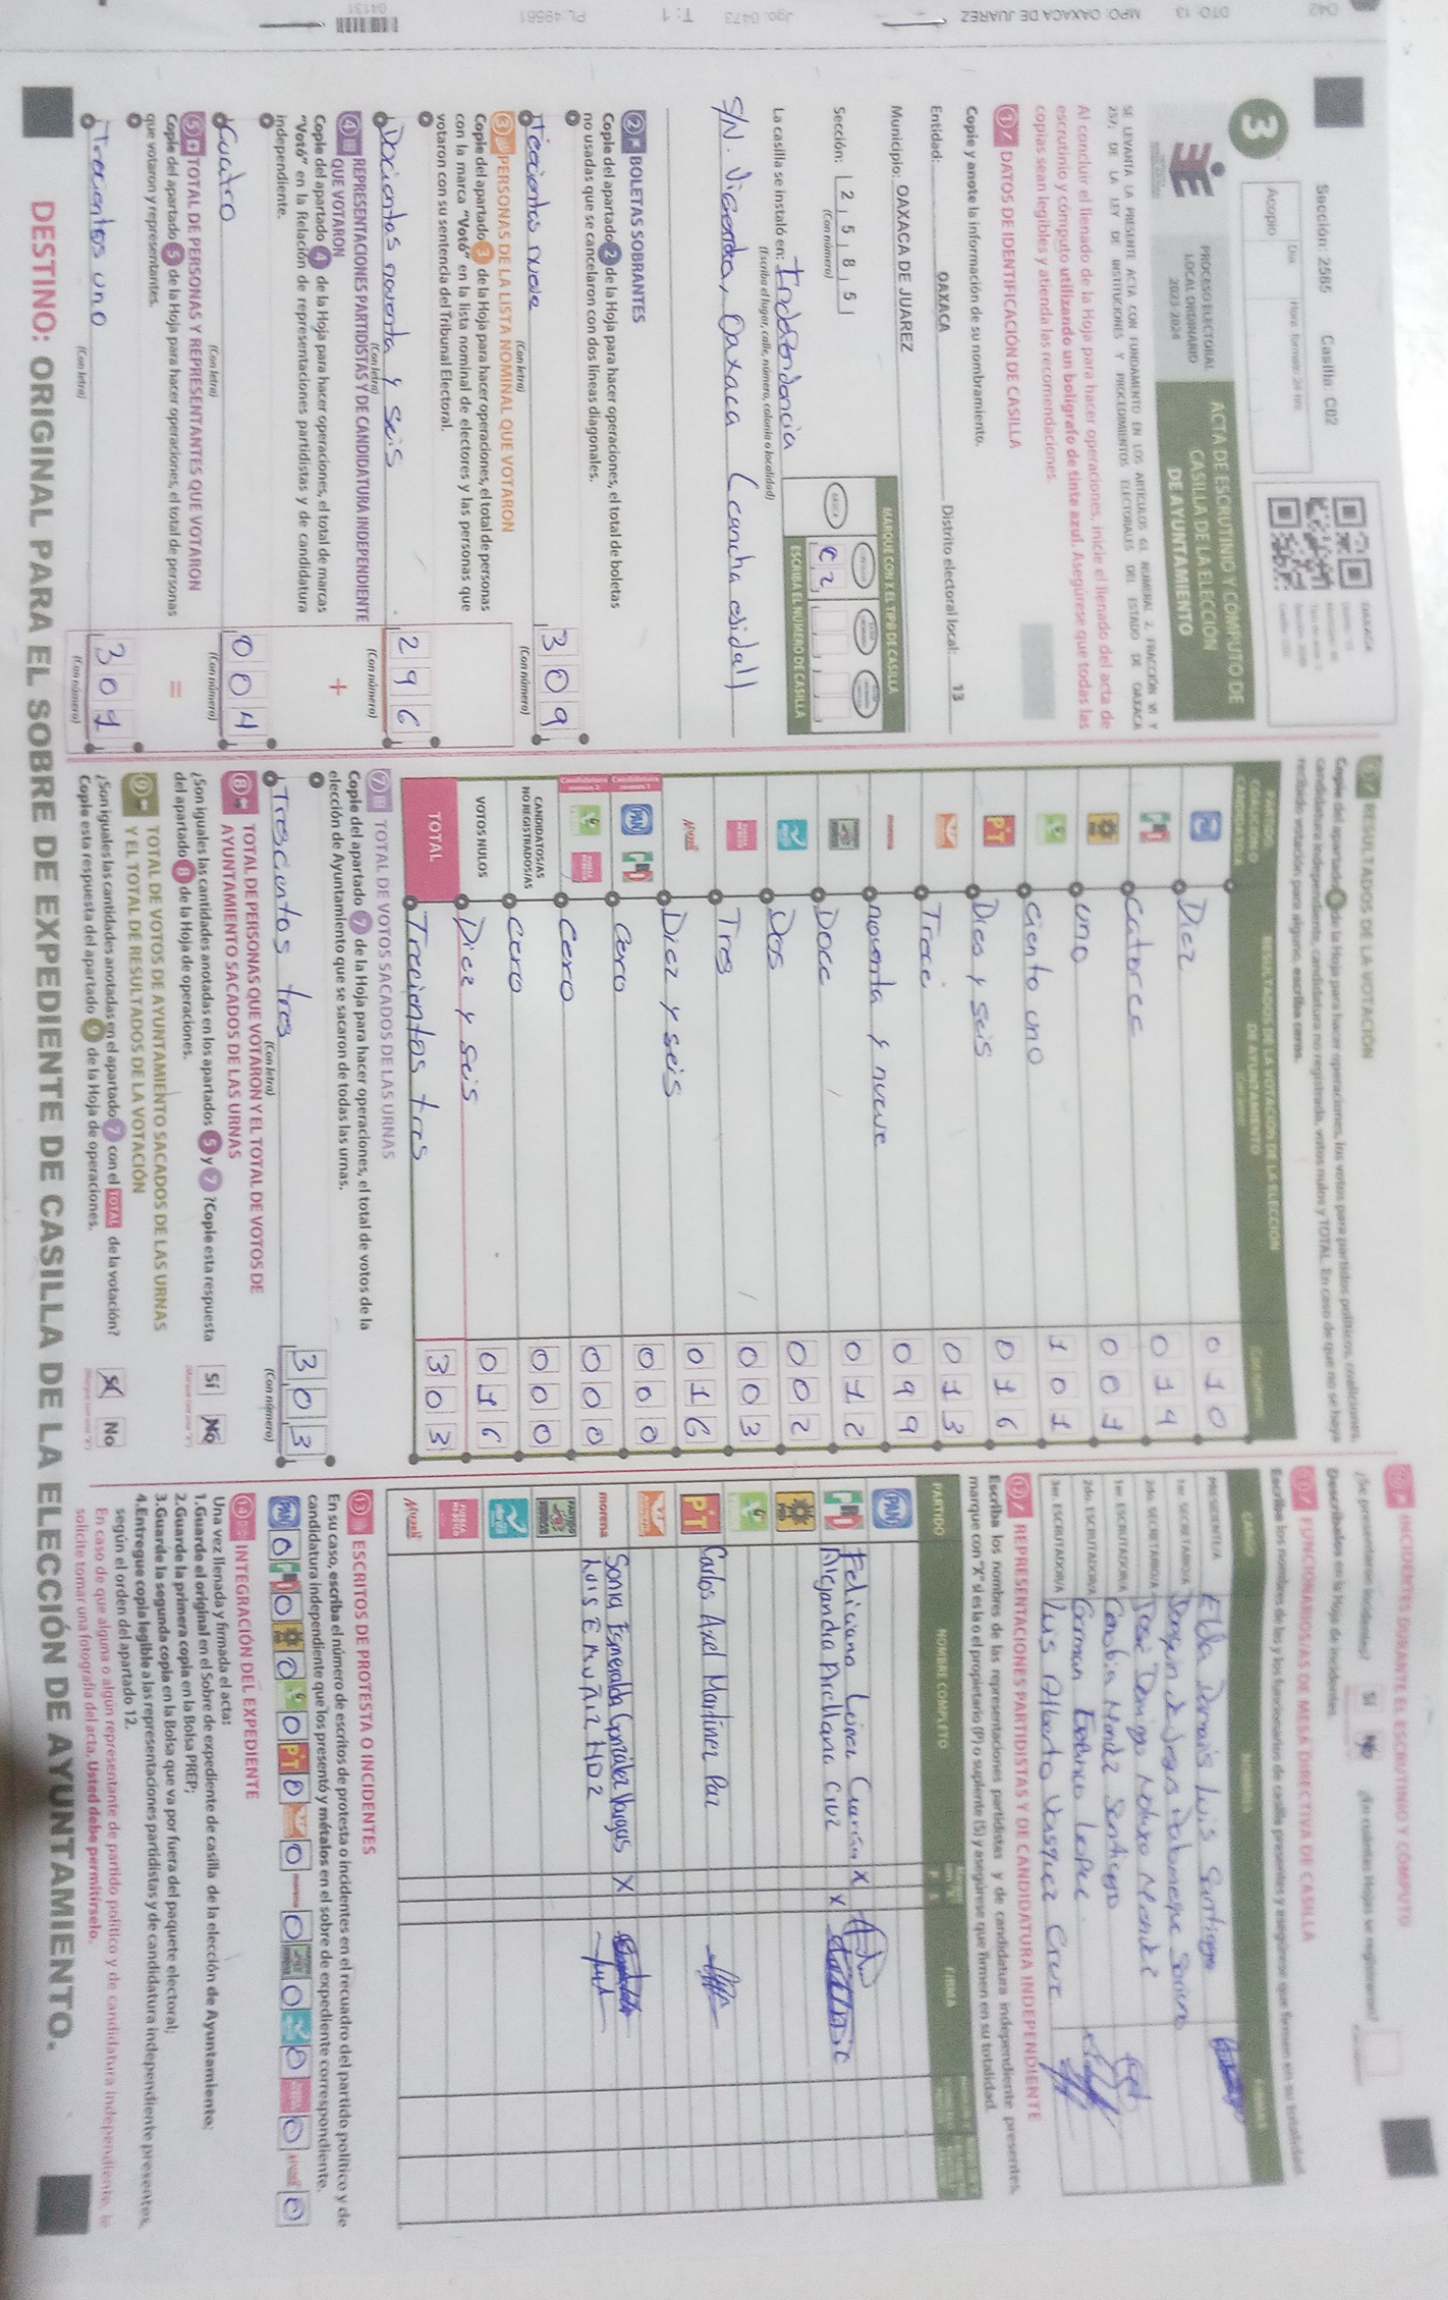 Sección: 2585 Casilla: C02
3
Acopio
Día
PROCESO ELECTORAL
LOCAL ORDINARIO
2023 2024
ACTA DE ESCRUTINIO Y CÓMPUTO DE
CASILLA DE LA ELECCIÓN
DE AYUNTAMIENTO
SE LEVANTA LA PRESENTE ACTA CON FUNDAMENTO EN LOS ARTÍCULOS 61, NUMERAL 2, FRACCIÓN VI Y
237, DE LA LEY DE INSTITUCIONES Y PROCEDIMIENTOS ELECTORALES DEL ESTADO DE OAXACA
Al concluir el llenado de la Hoja para hacer operaciones, inicie el llenado del acta de
escrutinio y cómputo utilizando un bolígrafo de tinta azul. Asegúrese que todas las
copias sean legibles y atienda las recomendaciones.
1 DATOS DE IDENTIFICACIÓN DE CASILLA
Copie y anote la información de su nombramiento.
Entidad: OAXACA Distrito electoral local: 13
Municipio: OAXACA DE JUAREZ
Sección: 2 5 8 5
(Con número)
MARQUE CON X EL TIPO DE CASILLA
C 2
ESCRIBA EL NÚMERO DE CASILLA
La casilla se instaló en: Independencia
(Escriba el lugar, calle, número, colonia o localidad)
S/N. Vicente, Oaxaca (cancha
2 BOLETAS SOBRANTES
Copie del apartado 2 de la Hoja para hacer operaciones, el total de boletas
no usadas que se cancelaron con dos líneas diagonales.
Trecientos nueve 3 0 9
(Con letra) (Con número)
3 PERSONAS DE LA LISTA NOMINAL QUE VOTARON
Copie del apartado 3 de la Hoja para hacer operaciones, el total de personas
con la marca "Votó" en la lista nominal de electores y las personas que
votaron con su sentencia del Tribunal Electoral.
Docientos noventa y seis 2 9 6
(Con letra) (Con número)
4 REPRESENTACIONES PARTIDISTAS Y DE CANDIDATURA INDEPENDIENTE
QUE VOTARON
Copie del apartado 4 de la Hoja para hacer operaciones, el total de marcas
"Votó" en la Relación de representaciones partidistas y de candidatura
independiente.
+
Cuatro 0 0 4
(Con letra) (Con número)
5 TOTAL DE PERSONAS Y REPRESENTANTES QUE VOTARON
Copie del apartado 5 de la Hoja para hacer operaciones, el total de personas
que votaron y representantes.
=
Trecientos uno 3 0 1
(Con letra) (Con número)
6 RESULTADOS DE LA VOTACIÓN
Copie del apartado 6 de la Hoja para hacer operaciones, los votos para partidos políticos, coaliciones,
candidatura independiente, candidatura no registrada, votos nulos y TOTAL. En caso de que no se haya
recibido votación para alguno, escriba ceros.
PARTIDO, COALICIÓN O CANDIDATO/A
RESULTADOS DE LA VOTACIÓN DE LA ELECCIÓN
DE AYUNTAMIENTO
Diez 0 1 0
catorce 0 1 4
uno 0 0 1
ciento uno 1 0 1
PT Dies y seis 0 1 6
Trece 0 1 3
morena noventa y nueve 0 9 9
Doce 0 1 2
Dos 0 0 2
Tres 0 0 3
Diez y seis 0 1 6
PAN cero 0 0 0
cero 0 0 0
CANDIDATOS/AS
NO REGISTRADOS/AS cero 0 0 0
VOTOS NULOS Diez y seis 0 1 6
TOTAL Trecientos tres 3 0 3
7 TOTAL DE VOTOS SACADOS DE LAS URNAS
Copie del apartado 7 de la Hoja para hacer operaciones, el total de votos de la
elección de Ayuntamiento que se sacaron de todas las urnas.
Trescientos tres 3 0 3
(Con letra) (Con número)
8 TOTAL DE PERSONAS QUE VOTARON Y EL TOTAL DE VOTOS DE
AYUNTAMIENTO SACADOS DE LAS URNAS
¿Son iguales las cantidades anotadas en los apartados 5 y 7 ? Copie esta respuesta
del apartado 8 de la Hoja de operaciones.
Sí No
9 TOTAL DE VOTOS DE AYUNTAMIENTO SACADOS DE LAS URNAS
Y EL TOTAL DE RESULTADOS DE LA VOTACIÓN
¿Son iguales las cantidades anotadas en el apartado 7 con el TOTAL de la votación?
Copie esta respuesta del apartado 9 de la Hoja de operaciones.
Sí No
INCIDENTES DURANTE EL ESCRUTINIO Y CÓMPUTO
¿Se presentaron incidentes? Sí No
Descríbalos en la Hoja de incidentes.
FUNCIONARIOS/AS DE MESA DIRECTIVA DE CASILLA
Escriba los nombres de las y los funcionarios de casilla presentes y asegúrese que firmen en su totalidad
CARGO NOMBRES FIRMAS
PRESIDENTE/A Elda Damaris Luis Santiago
1er. SECRETARIO/A
2do. SECRETARIO/A Jose Domingo
1er. ESCRUTADOR/A
2do. ESCRUTADOR/A German
3er. ESCRUTADOR/A Luis Alberto Vasquez Cruz
12 REPRESENTACIONES PARTIDISTAS Y DE CANDIDATURA INDEPENDIENTE
Escriba los nombres de las representaciones partidistas y de candidatura independiente presentes,
marque con "X" si es la o el propietario (P) o suplente (S) y asegúrese que firmen en su totalidad.
PARTIDO NOMBRE COMPLETO FIRMA
PAN
Feliciano X
Alejandra Arellano Cruz X
PT Carlos Axel Martínez Paz
morena Sonia Esmeralda González Vargas X
Luis E Muñiz HDZ
13 ESCRITOS DE PROTESTA O INCIDENTES
En su caso, escriba el número de escritos de protesta o incidentes en el recuadro del partido político y de
candidatura independiente que los presentó y métalos en el sobre de expediente correspondiente.
PAN 0 0 0 0 PT 0 0 0 0 0 0 0
14 INTEGRACIÓN DEL EXPEDIENTE
Una vez llenada y firmada el acta:
1.Guarde el original en el Sobre de expediente de casilla de la elección de Ayuntamiento;
2.Guarde la primera copia en la Bolsa PREP;
3.Guarde la segunda copia en la Bolsa que va por fuera del paquete electoral;
4.Entregue copia legible a las representaciones partidistas y de candidatura independiente presentes,
según el orden del apartado 12.
En caso de que alguna o algún representante de partido político y de candidatura independiente, le
solicite tomar una fotografía del acta, Usted debe permitírselo.
DESTINO: ORIGINAL PARA EL SOBRE DE EXPEDIENTE DE CASILLA DE LA ELECCIÓN DE AYUNTAMIENTO.
042 DTO: 13 MPO: OAXACA DE JUAREZ Jgo: 0473 T: 1 PL: 49561